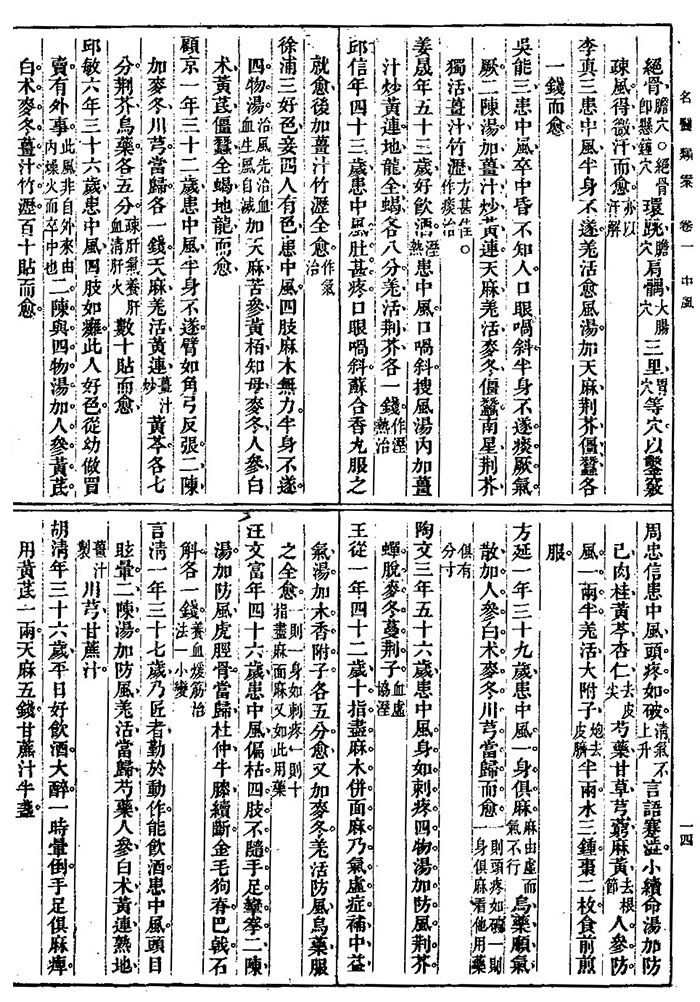 名醫類案　卷一　中風
一四
絕骨膽穴○絕骨即懸鍾穴環跳膽穴肩髃大腸穴三里胃穴等穴以鑿竅
疎風得微汗而愈亦以汗解
李真三患中風半身不遂羌活愈風湯加天麻荆芥僵蠶各
一錢而愈
吳能三患中風卒中昏不知人口眼喎斜半身不遂痰厥氣
厥二陳湯加薑汁炒黃連天麻羌活麥冬僵蠶南星荆芥
獨活薑汁竹瀝方甚佳○作痰治
姜晟年五十三歲好飲酒溼熱患中風口喎斜搜風湯內加薑
汁炒黃連地龍全蝎各八分羌活荆芥各一錢作溼熱治
邱信年四十三歲患中風肚甚疼口眼喎斜蘇合香丸服之
就愈後加薑汁竹瀝全愈作氣治
徐浦三好色妾四人有色患中風四肢麻木無力半身不遂
四物湯治風先治血血生風自滅加天麻苦參黃栢知母麥冬人參白
术黃芪僵蠶全蝎地龍而愈
顧京一年三十二歲患中風半身不遂臂如角弓反張二陳
加麥冬川芎當歸各一錢天麻羌活黃連薑汁炒黃芩各七
分荆芥烏藥各五分疎肝氣養肝血清肝火數十貼而愈
邱敏六年三十六歲患中風四肢如癱此人好色從幼做買
賣有外事此風非自外來由內燥火而卒中也二陳與四物湯加人參黃芪
白术麥冬薑汁竹瀝百十貼而愈
周忠信患中風頭疼如破清氣不上升言語蹇澁小續命湯加防
己肉桂黃芩杏仁去皮尖芍藥甘草芎藭麻黃去根節人參防
風一兩半羌活大附子炮去皮臍半兩水三鍾棗二枚食前煎
服
方延一年三十九歲患中風一身俱麻麻由虛而氣不行烏藥順氣
散加人參白术麥冬川芎當歸而愈一則頭疼如破一則一身俱麻看他用藥
俱有分寸
陶文三年五十六歲患中風身如刺疼四物湯加防風荆芥
蟬脫麥冬蔓荆子血虛協溼
王從一年四十二歲十指盡麻木併面麻乃氣虛症補中益
氣湯加木香附子各五分愈又加麥冬羌活防風烏藥服
之全愈一則一身如刺疼一則十指盡麻面麻又如此用藥
汪文富年四十六歲患中風偏枯四肢不隨手足攣拳二陳
湯加防風虎脛骨當歸杜仲牛膝續斷金毛狗脊巴戟石
斛各一錢養血煖筋治法一小變
言清一年三十七歲乃匠者勤於動作能飲酒患中風頭目
眩暈二陳湯加防風羌活當歸芍藥人參白术黃連熟地
薑汁製川芎甘蔗汁
胡清年三十六歲平日好飲酒大醉一時暈倒手足俱麻痺
用黃芪一兩天麻五錢甘蔗汁半盞